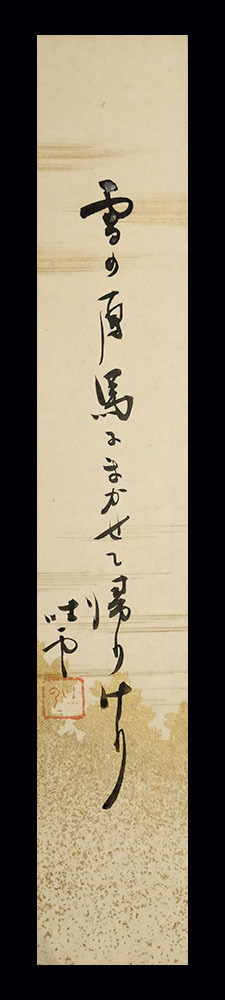 雪の原馬にまかせて帰りけり